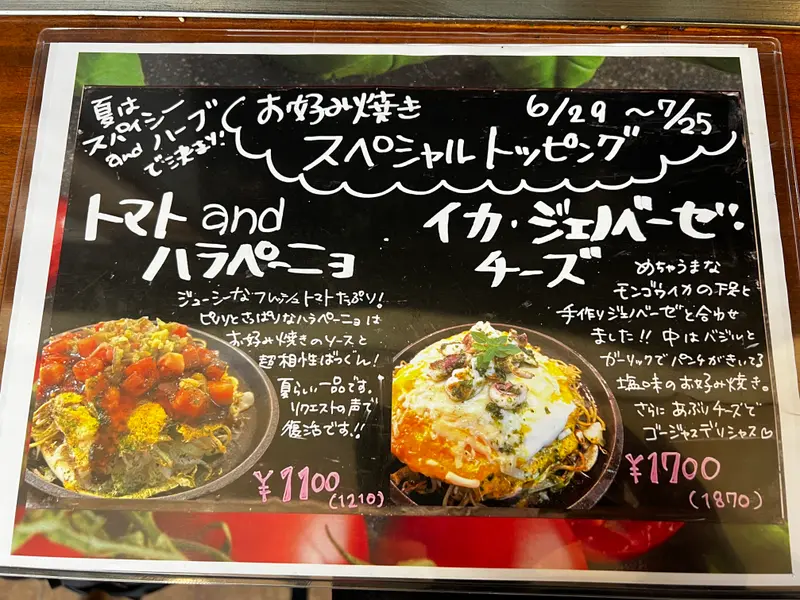 夏は
スパイシー
and ハーブ
で決まり!
お好み焼き 6/29 〜7/25
スペシャルトッピング
トマト and
ハラペーニョ
ジューシーなフレッシュトマトたっぷり!
ピリッとさっぱりなハラペーニョは
お好み焼きのソースと
超相性ばつぐん!
夏らしい一品です。
リクエストの声で
復活です!!
¥1100
(1210)
イカ・ジェノベーゼ・
チーズ
めちゃうまな
モンゴウイカの下足と
手作りジェノベーゼと合わせ
ました!! 中はバジルと
ガーリックでパンチがきいてる
塩味のお好み焼き。
さらにあぶりチーズで
ゴージャスデリシャス♡
¥1700
(1870)